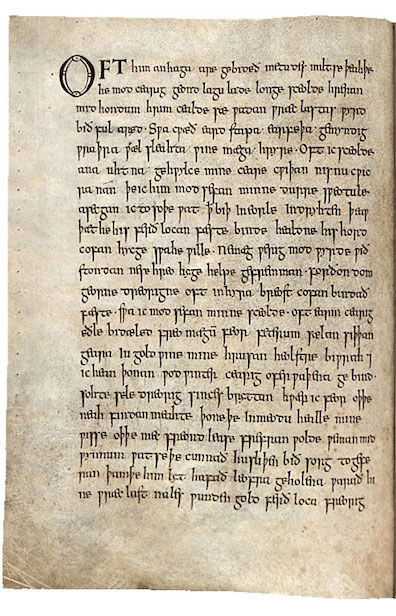 OFT him anhaga are gebideð metudes miltse þeah þe
he mod cearig geond lagu lade longe sceolde hreran
mid hondum hrim cealde sæ ƿadan ƿræc lastas ƿyrd
bið ful aræd · Sƿa cƿæð eard stapa earfeþa gemyndig
ƿraþra ƿæl sleahta ƿine mæga hryre · Oft ic sceolde
ana uhtna gehƿylce mine ceare cƿiþan nis nu cƿic
ra nan þe ic him mod sefan minne durre sƿeotule
asecgan ic to soþe ƿat ꝥ biþ in eorle indryhten þeaƿ
þæt he his ferð locan fæste binde healdne his hord
cofan hycge sƿa he ƿille · Ne mæg ƿerig mod ƿyrde ƿið
stondan ne se hreo hyge helpe gefremman · Forðon dom
georne dreorigne oft in hyra breost cofan bindað
fæste · sƿa ic mod sefan minne sceolde · oft earm cearig
eðle bidæled freo mægū feor feterum sælan siþþan
geara iu gold ƿine mine hrusan heolstre biƿrah ⁊
ic hean þonan ƿod ƿinter cearig ofer ƿaþena ge bind ·
sohte sele dreorig sinces bryttan hƿær ic feor oþþe
neah findan meahte þone þe in meodu healle mine
ƿisse oþþe mec freond lease frefran ƿolde ƿeman mid
ƿynnum ƿat se þe cunnað hu sliþen bið sorg to gefe
ran þam þe him lyt hafað leofra geholena ƿarað hi
ne ƿræc last nales ƿunden gold ferð loca freorig